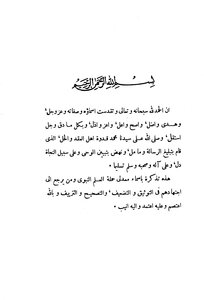 بسم الله الرحمن الرحيم
ان الحمد لله سبحانه وتعالى وتقدست اسماؤه وصفاته وعز وجل
وهدى واضل وامنح واعل واعز واذل وبكل ما دق وجل
استقل وصلى الله على سيدنا محمد قدوة اهل العقد والحل الذي
قام بتبليغ الرسالة وما مل ونهض بتبيين الوحي وعلى سبيل النجاة
دل وعلى آله وصحبه وسلم تسليما
هذه تذكرة باسماء معدلي حملة العلم النبوي ومن يرجع الى
اجتهادهم في التوثيق والتضعيف والتصحيح والتزييف وبالله
اعتصم وعليه اعتمد واليه انيب